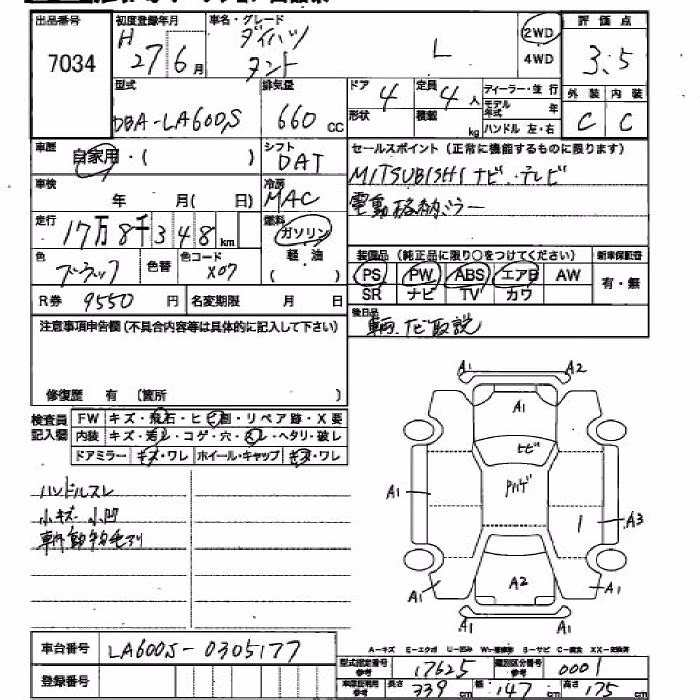 出品番号 初度登録年月 車名・グレード 評価点
7034 H 27 6月 ダイハツ タント L 2WD 4WD 3.5
型式 排気量 ドア 定員 ディーラー・並行 外装 内装
DBA-LA600S 660 CC 4 形状 4人 積載 kg モデル年式 年 ハンドル 左・右 C C
車歴 自家用・( ) シフト DAT セールスポイント(正常に機能するものに限ります)
車検 年 月( 日) 冷房 MAC MITSUBISHI ナビ・テレビ
電動格納ミラー
走行 17万8千348 km 燃料 ガソリン 軽油 ( )
色 ブラック 色替 色コード X07
装備品(純正品に限り○をつけてください) 新車保証書
PS PW ABS エアB AW 有・無
SR ナビ TV カワ
R券 9550 円 名変期限 月 日
後日品
注意事項申告欄(不具合内容等は具体的に記入して下さい)
修復歴 有 (箇所 )
検査員記入欄 FW キズ・飛石・ヒビ・リペア跡・X要
内装 キズ・汚レ・コゲ・穴・スレ・ヘタリ・破レ
ドアミラー キズ・ワレ ホイール・キャップ キズ・ワレ
ハンドルスレ
小キズ 小凹
A1 A2
A1
ヒビ
A1 A3
A2
A1 A1
A1 A1
A-キズ E-エクボ U-凹み S-サビ C-腐食 XX-交換済
車台番号 LA600S-0305177
型式指定番号 参考 17625 類別区分番号 参考 0001
登録番号 長さ 339 cm 幅 147 cm 高さ 175 cm